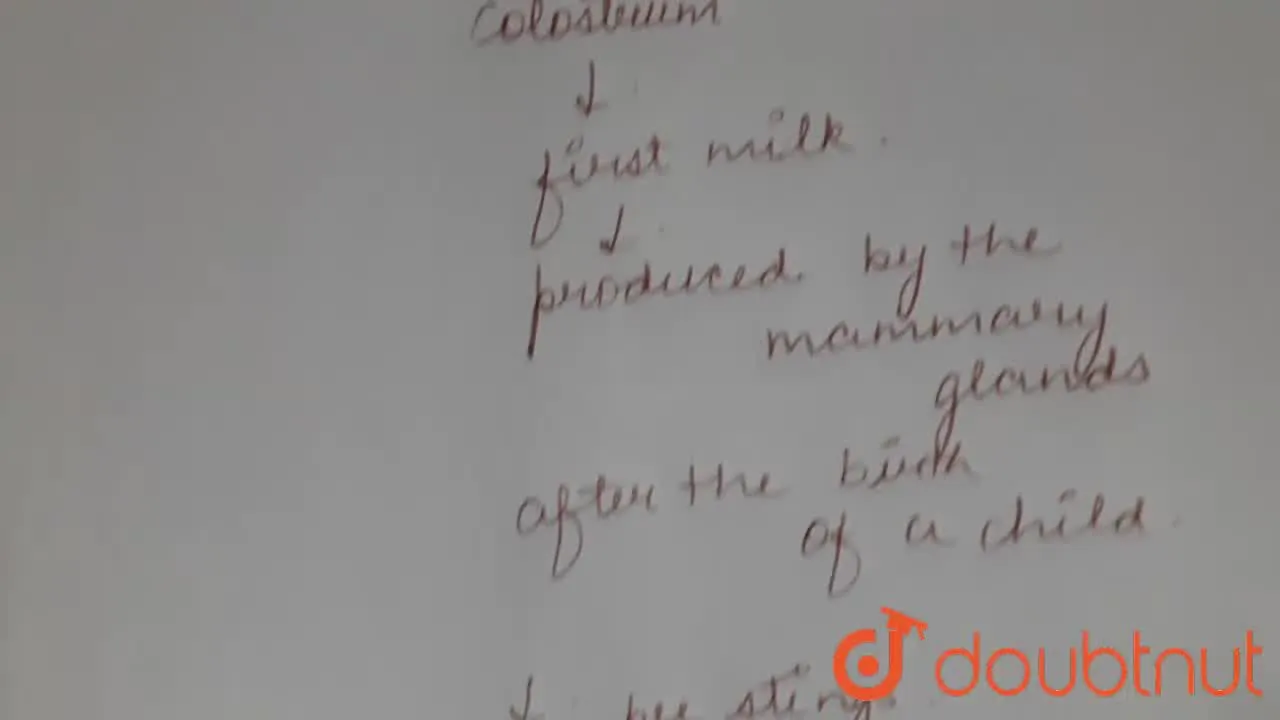 Colostrum
↓
first milk.
↓
produced by the
mammary
glands
after the birth
of a child.
↓ bee sting.
doubtnut